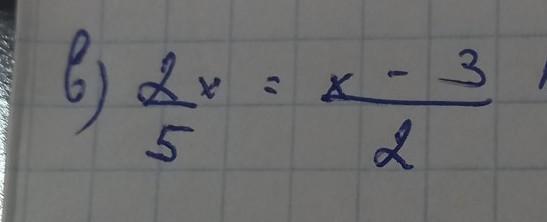 в) 2/5 x = (x - 3)/2